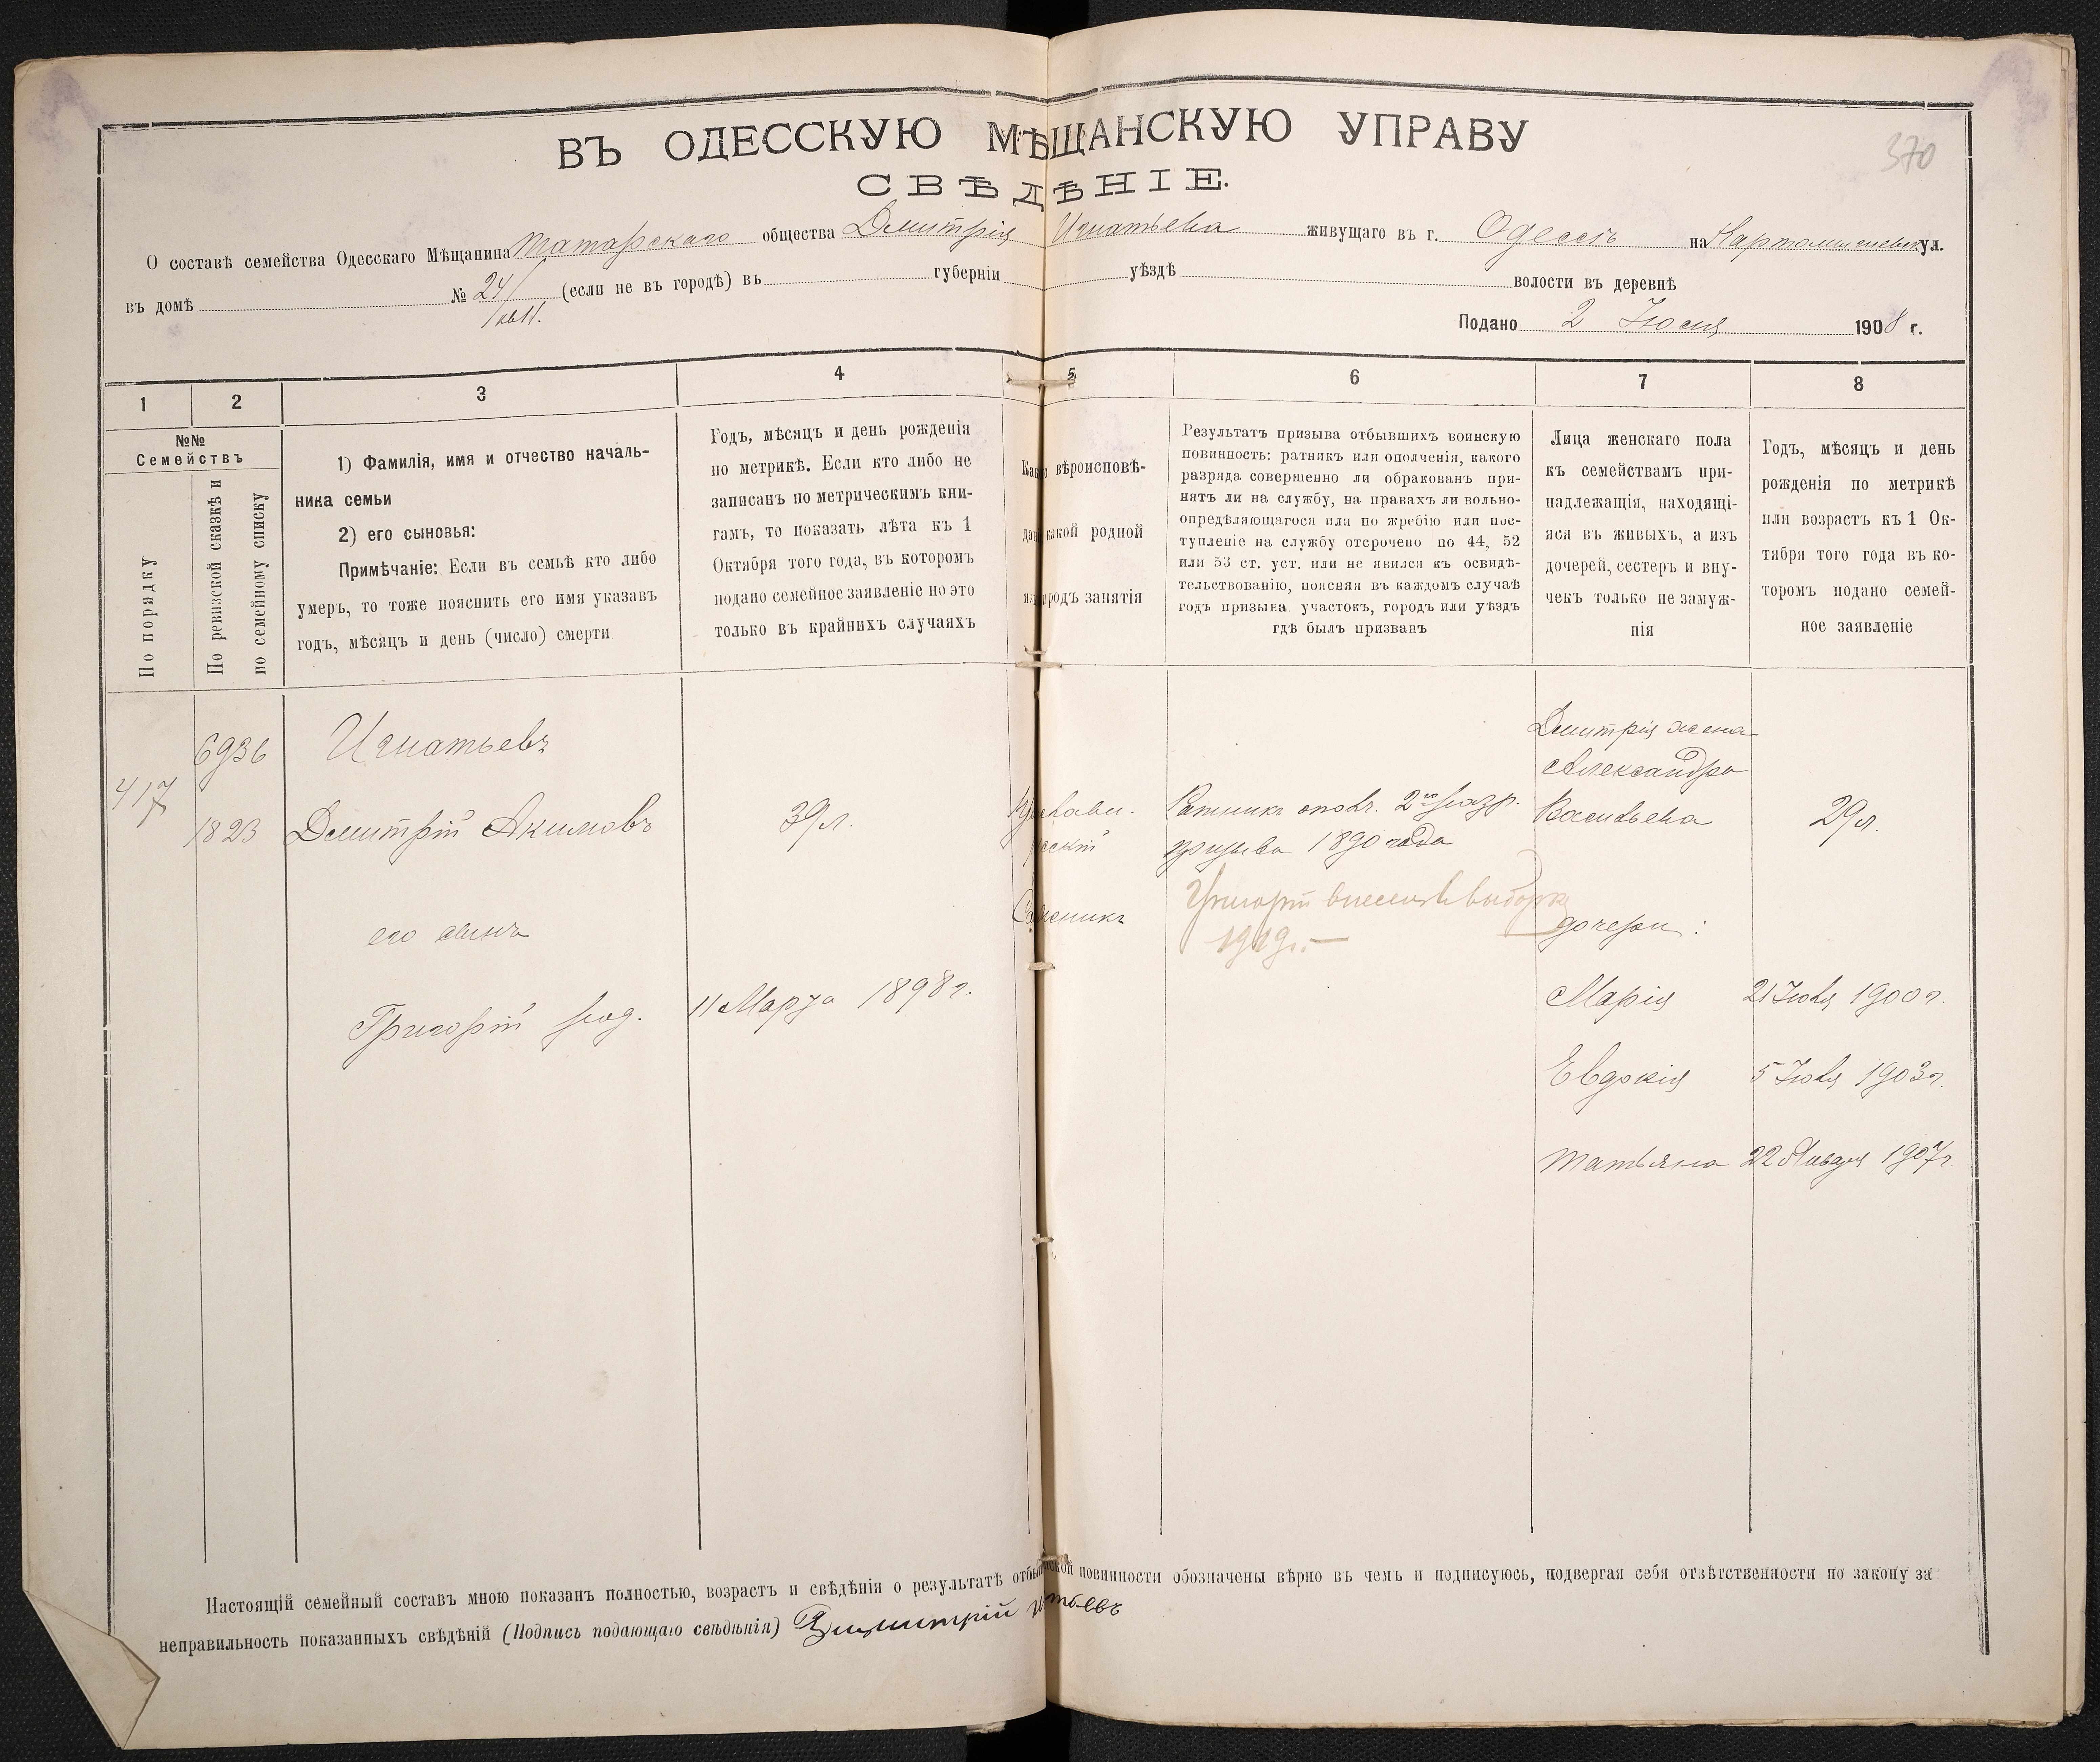 ВЪ ОДЕССКУЮ МѢЩАНСКУЮ УПРАВУ
370
СВѢДѢНІЕ.
О составѣ семейства Одесскаго Мѣщанина Татарскаго общества Дмитрія Игнатьева живущаго въ г. Одессѣ на ул.
въ домѣ № 24/ кв 11. (если не въ городѣ) въ губерніи уѣздѣ волости въ деревнѣ
Подано 2 1908 г.
1 2 3 4 5 6 7 8
№№
Семействъ
По порядку
По ревизской сказкѣ и
по семейному списку
1) Фамилія, имя и отчество началь-
ника семьи
2) его сыновья:
Примѣчаніе: Если въ семьѣ кто либо
умеръ, то тоже пояснить его имя указавъ
годъ, мѣсяцъ и день (число) смерти
Годъ, мѣсяцъ и день рожденія
по метрикѣ. Если кто либо не
записанъ по метрическимъ кни-
гамъ, то показать лѣта къ 1
Октября того года, въ которомъ
подано семейное заявленіе но это
только въ крайнихъ случаяхъ
вѣроисповѣ-
какой родной
родъ занятія
Результатъ призыва отбывшихъ воинскую
повинность: ратникъ или ополченія, какого
разряда совершенно ли обракованъ при-
нятъ ли на службу, на правахъ ли вольно-
опредѣляющагося или по жребію или пос-
тупленіе на службу отсрочено по 44, 52
или 53 ст. уст. или не явился къ освидѣ-
тельствованію, поясняя въ каждомъ случаѣ
годъ призыва участокъ, городъ или уѣздъ
гдѣ былъ призванъ
Лица женскаго пола
къ семействамъ при-
надлежащія, находящі-
яся въ живыхъ, а изъ
дочерей, сестеръ и вну-
чекъ только незамуж-
нія
Годъ, мѣсяцъ и день
рожденія по метрикѣ
или возрастъ къ 1 Ок-
тября того года въ ко-
торомъ подано семей-
ное заявленіе
417
6936
1823
Игнатьевъ
Дмитрій Акимовъ
39 л.
Ратникъ ополч. 2го разр.
призыва 1890 года
Григорій внесенъ в
1919г.
Дмитрія жена
Александра
Васильева
29 л.
его сынъ
дочери:
Григорій род.
11 Марта 1898 г.
Марія
21 Іюля 1900 г.
Евдокія
5 Іюля 1903 г.
Татьяна
22 Января 1907 г.
Настоящій семейный составъ мною показанъ полностью, возрастъ и свѣдѣнія о результатѣ повинности обозначены вѣрно въ чемъ и подписуюсь, подвергая себя отвѣтственности по закону за
неправильность показанныхъ свѣдѣній (Подпись подающаго свѣдѣнія)